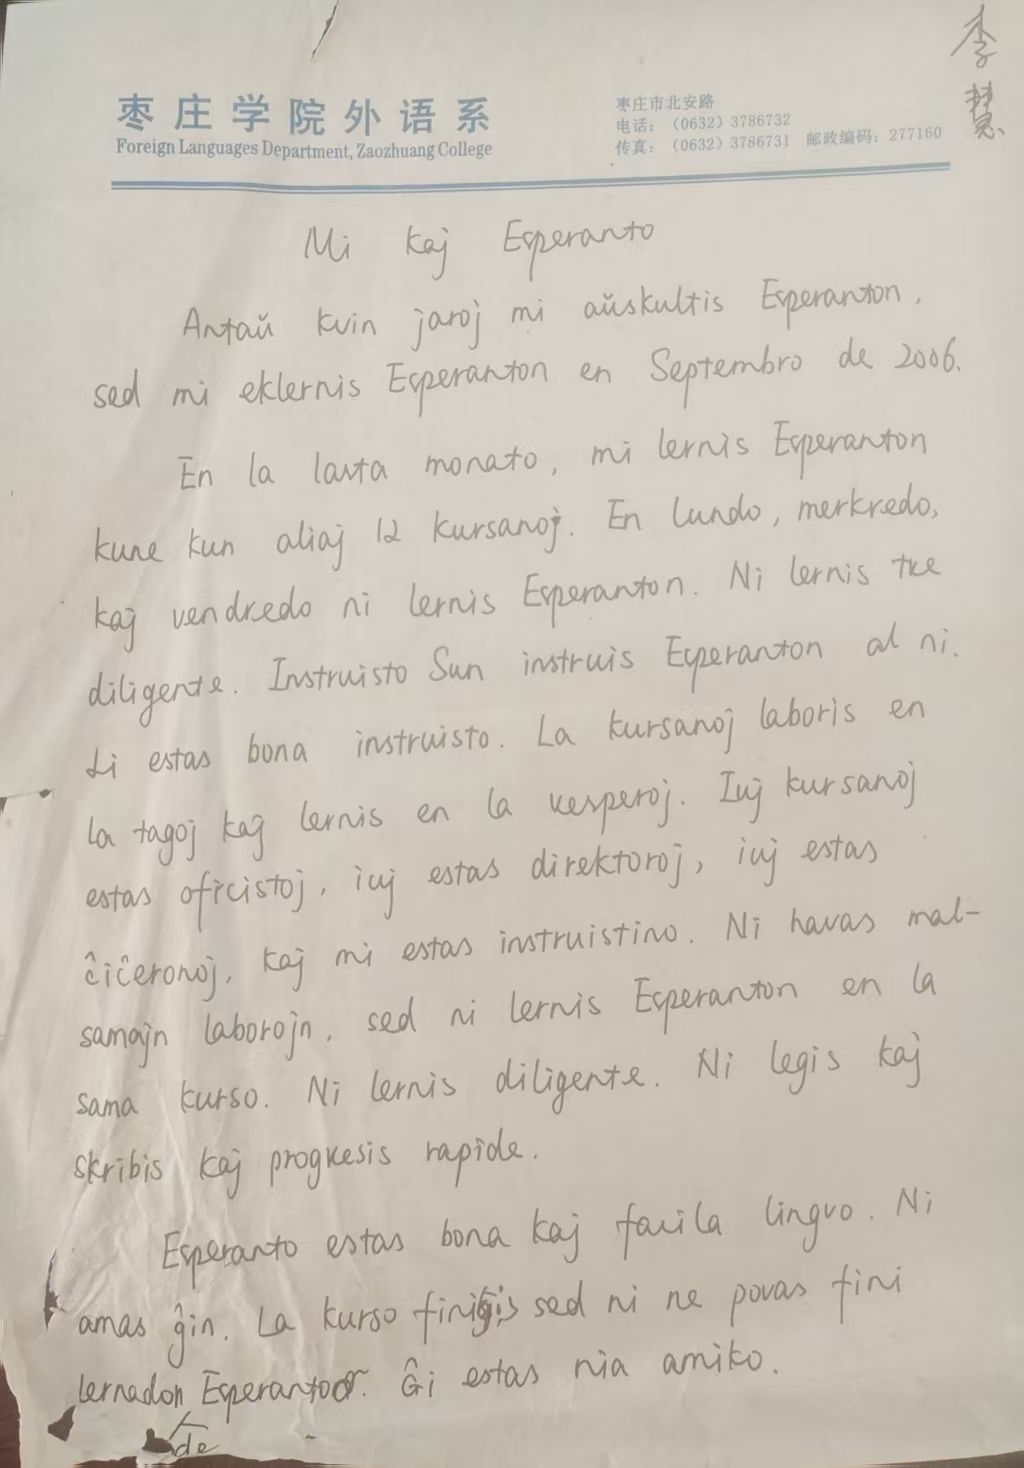 李慧
枣庄学院外语系
Foreign Languages Department, Zaozhuang College
枣庄市北安路
电话：（0632）3786732
传真：（0632）3786731 邮政编码：277160
Mi kaj Esperanto
Antaŭ kvin jaroj mi aŭskultis Esperanton,
sed mi eklernis Esperanton en Septembro de 2006.
En la lasta monato, mi lernis Esperanton
kune kun aliaj 12 kursanoj. En lundo, merkredo,
kaj vendredo ni lernis Esperanton. Ni lernis tre
diligente. Instruisto Sun instruis Esperanton al ni.
Li estas bona instruisto. La kursanoj laboris en
la tagoj kaj lernis en la vesperoj. Iuj kursanoj
estas oficistoj, iuj estas direktoroj, iuj estas
ĉiĉeronoj, kaj mi estas instruistino. Ni havas mal-
samajn laborojn, sed ni lernis Esperanton en la
sama kurso. Ni lernis diligente. Ni legis kaj
skribis kaj progresis rapide.
Esperanto estas bona kaj facila lingvo. Ni
amas ĝin. La kurso finiĝis sed ni ne povas fini
lernadon Esperanto. Ĝi estas nia amiko.
de